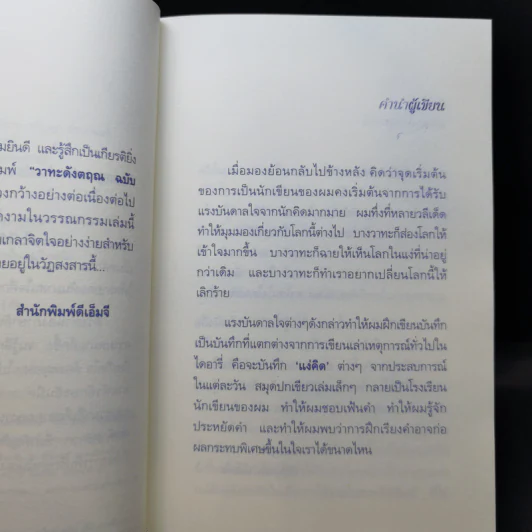 มยินดี และรู้สึกเป็นเกียรติยิ่ง
มพ์ "วาทะดังตฤณ ฉบับ
งกว้างอย่างต่อเนื่องต่อไป
งามในวรรณกรรมเล่มนี้
มเกลาจิตใจอย่างง่ายสำหรับ
ยอยู่ในวัฏสงสารนี้...
สำนักพิมพ์ดีเอ็มจี
คำนำผู้เขียน
เมื่อมองย้อนกลับไปข้างหลัง คิดว่าจุดเริ่มต้น
ของการเป็นนักเขียนของผมคงเริ่มต้นจากการได้รับ
แรงบันดาลใจจากนักคิดมากมาย ผมทึ่งที่หลายวลีเด็ด
ทำให้มุมมองเกี่ยวกับโลกนี้ต่างไป บางวาทะก็ส่องโลกให้
เข้าใจมากขึ้น บางวาทะก็ฉายให้เห็นโลกในแง่ที่น่าอยู่
กว่าเดิม และบางวาทะก็ทำเราอยากเปลี่ยนโลกนี้ให้
เลิกร้าย
แรงบันดาลใจต่างๆดังกล่าวทำให้ผมฝึกเขียนบันทึก
เป็นบันทึกที่แตกต่างจากการเขียนเล่าเหตุการณ์ทั่วไปใน
ไดอารี่ คือจะบันทึก 'แง่คิด' ต่างๆ จากประสบการณ์
ในแต่ละวัน สมุดปกเขียวเล่มเล็กๆ กลายเป็นโรงเรียน
นักเขียนของผม ทำให้ผมชอบเฟ้นคำ ทำให้ผมรู้จัก
ประหยัดคำ และทำให้ผมพบว่าการฝึกเรียงคำอาจก่อ
ผลกระทบพิเศษขึ้นในใจเราได้ขนาดไหน